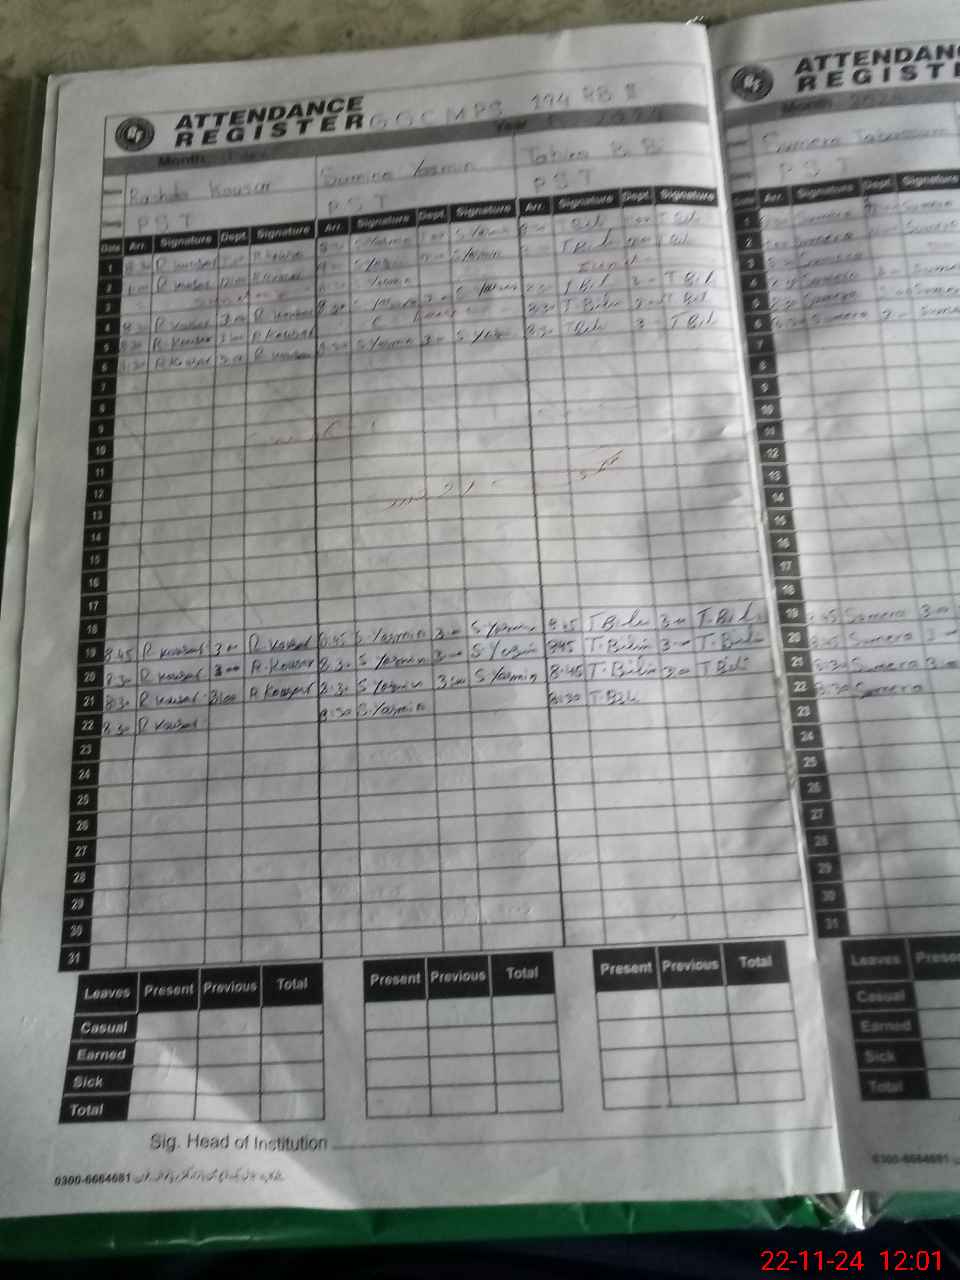 ATTENDANCE
REGISTER GGCMPS 194 RB II
Month
Year 2024
Rashida Kousar Sumira Yasmin Tahira Bi Bi
PST PST PST
Date Arr. Signature Dept. Signature Arr. Signature Dept. Signature Arr. Signature Dept. Signature
1 8:30 R Kousar R Kousar S Yasmin S Yasmin T Bibi T Bibi
2 R Kousar S Yasmin S Yasmin T Bibi T Bibi
3 Sunday
4 8:30 R Kousar 3:00 R Kousar 8:30 S Yasmin 3:00 S Yasmin T Bibi 3:00 T Bibi
5 8:30 R Kousar 3:00 R Kousar 8:30 T Bibi 3:00 T Bibi
6 8:30 R Kousar 3:00 R Kousar 8:30 S Yasmin 3:00 S Yasmin 8:30 T Bibi 3:00 T Bibi
7
8
9
10
11
12
13
14
15
16
17
18
19 8:45 R Kousar 3:00 R Kousar 8:45 S Yasmin 3:00 S Yasmin 8:45 T Bibi 3:00 T. Bibi
20 8:30 R Kousar 3:00 R. Kousar 8:30 S Yasmin 3:00 S Yasmin 8:45 T. Bibi 3:00 T. Bibi
21 8:30 R Kousar 3:00 R Kousar 8:30 S Yasmin 3:00 S Yasmin 8:45 T. Bibi 3:00 T Bibi
22 8:30 R Kousar 8:30 S. Yasmin 8:30 T. Bibi
23
24
25
26
27
28
29
30
31
Leaves Present Previous Total Present Previous Total Present Previous Total
Casual
Earned
Sick
Total
Sig. Head of Institution
0300-6664681
ATTENDAN
REGIST
Month 2024
Sumera Tabassum
PST
Date Arr. Signature Dept. Signature
1 Sumera Sumera
2 Sumera Sumera
3
4 Sumera 3:00 Sumera
5 8:30 Sumera Sumera
6 8:30 Sumera 3:00 Sumera
7
8
9
10
11
12
13
14
15
16
17
18
19 8:45 Sumera 3:00
20 8:45 Sumera 3:00
21 8:30 Sumera 3:00
22 8:30 Sumera
23
24
25
26
27
28
29
30
31
Leaves Prese
Casual
Earned
Sick
Total
0300-6664681
22-11-24 12:01